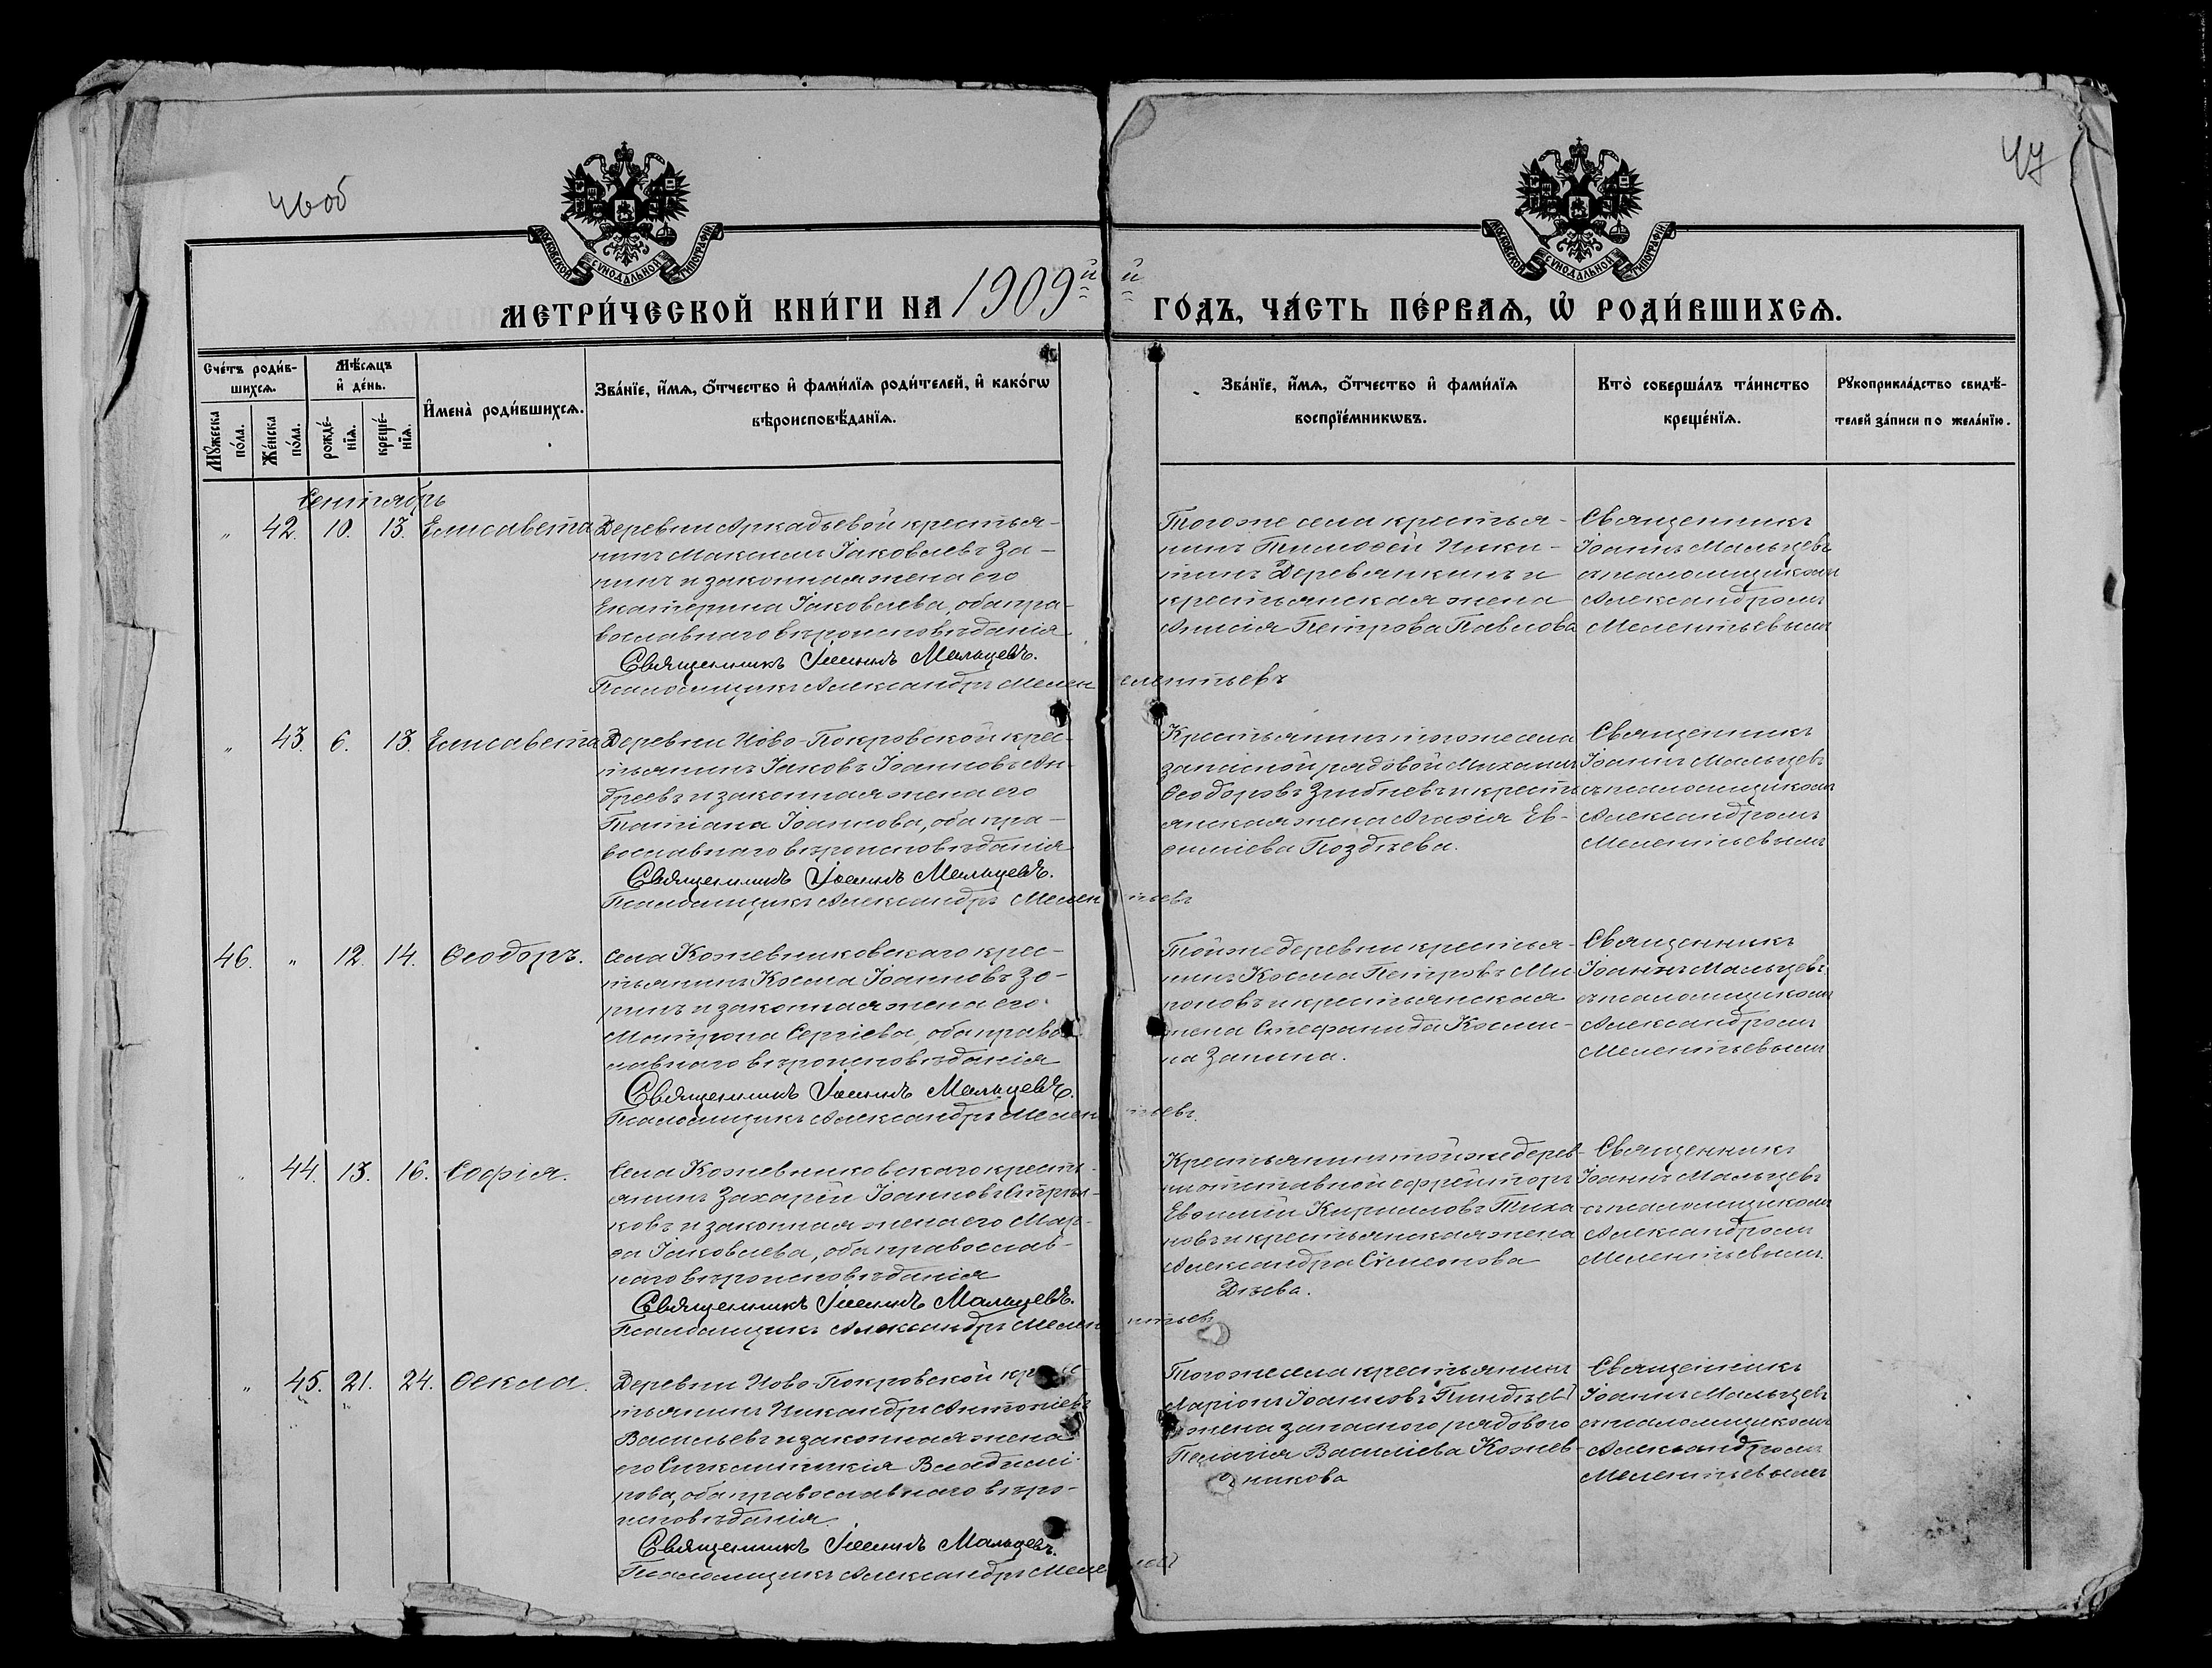 46об
47
МОСКОВСКОЙ СѴНОДАЛЬНОЙ ТИПОГРАФІИ
МОСКОВСКОЙ СѴНОДАЛЬНОЙ ТИПОГРАФІИ
МЕТРИ́ЧЕСКОЙ КНИ́ГИ НА 1909й
й ГО́ДЪ, ЧА́СТЬ ПЕ́РВАѦ, Ѽ РОДИ́ВШИХСѦ.
Сче́тъ роди́в-
шихсѧ.
Мꙋжеска по́ла.
Же́нска по́ла.
Мѣ́сѧцъ
и҆ де́нь.
рожде́-
нїѧ.
креще́-
нїѧ.
И҆мена̀ роди́вшихсѧ.
Зва́нїе, и҆́мѧ, ѻ҆́тчество и҆ фами́лїѧ роди́телей, и҆ како́гѡ
вѣроисповѣ́данїѧ.
Зва́нїе, и҆́мѧ, ѻ҆́тчество и҆ фами́лїѧ
воспрїе́мникѡвъ.
Кто̀ соверша́лъ та́инство
креще́нїѧ.
Рꙋкоприкла́дство свидѣ́-
телей за́писи по жела́нїю.
Сентябрь
„ 42. 10. 13. Елисавета
Деревни Аркадьевой крестья-
нинъ Максимъ Іаковлевъ За-
нинъ и законная жена его
Екатерина Іаковлева, оба пра-
вославнаго вѣроисповѣданія
Священникъ Іоаннъ Мальцевъ.
Псаломщикъ Александръ Мелентьевъ
Тогоже села крестья-
нинъ Тимофей Ники-
тинъ Деревянкинъ и
крестьянская жена
Анисія Петрова Павлова
Священникъ
Іоаннъ Мальцевъ
съ псаломщикомъ
Александромъ
Мелентьевымъ
„ 43. 6. 13. Елисавета
Деревни Ново-Покровской крес-
тьянинъ Іаковъ Іоанновъ Ан-
дреевъ и законная жена его
Татіана Іоаннова, оба пра-
вославнаго вѣроисповѣданія
Священникъ Іоаннъ Мальцевъ.
Псаломщикъ Александръ Мелентьевъ
Крестьянинъ тогоже села
запасной рядовой Михаилъ
Ѳеодоровъ и крестья
янская жена Агафія Ев-
ѳиміева Поздѣева.
Священникъ
Іоаннъ Мальцевъ
съ псаломщикомъ
Александромъ
Мелентьевымъ
46. „ 12. 14. Ѳеодоръ.
Села Кожевниковскаго крес-
тьянинъ Косма Іоанновъ Зо-
ринъ и законная жена его
Матрона Сергіева, оба право
лавнаго вѣроисповѣданія
Священникъ Іоаннъ Мальцевъ.
Псаломщикъ Александръ Мелентьевъ.
Тойже деревни крестья-
нинъ Косма Петровъ Ми
роновъ и крестьянская
жена Стефанида Косми-
на Занина.
Священникъ
Іоаннъ Мальцевъ
съ псаломщикомъ
Александромъ
Мелентьевымъ
„ 44. 13. 16. Софія.
Села Кожевниковскаго крестъ-
янинъ Захарій Іоанновъ Стрѣл-
ковъ и законная жена его Мар-
ѳа Іаковлева, оба православ-
наго вѣроисповѣданія
Священникъ Іоаннъ Мальцевъ.
Псаломщикъ Александръ Мелентьевъ
Крестьянинъ тойже дерев-
ни отставной ефрейторъ
Евѳимій Кирилловъ Тиха
новъ и крестьянская жена
Александра Симеонова
Дѣева.
Священникъ
Іоаннъ Мальцевъ
съ псаломщикомъ
Александромъ
Мелентьевымъ.
„ 45. 21. 24. Ѳекла.
Деревни Ново-Покровской крес
тьянинъ Никандръ Антоніевъ
Васильевъ и законная жена
его Синклитикія Владимі-
рова, оба православнаго вѣро-
исповѣданія.
Священникъ Іоаннъ Мальцевъ.
Псаломщикъ Александръ
Тогоже села крестьянинъ
Ларіонъ Іоанновъ
жена запаснаго рядового
Пелагія Василіева Кожев-
никова
Священникъ
Іоаннъ Мальцевъ
съ псаломщикомъ
Александромъ
Мелентьевымъ